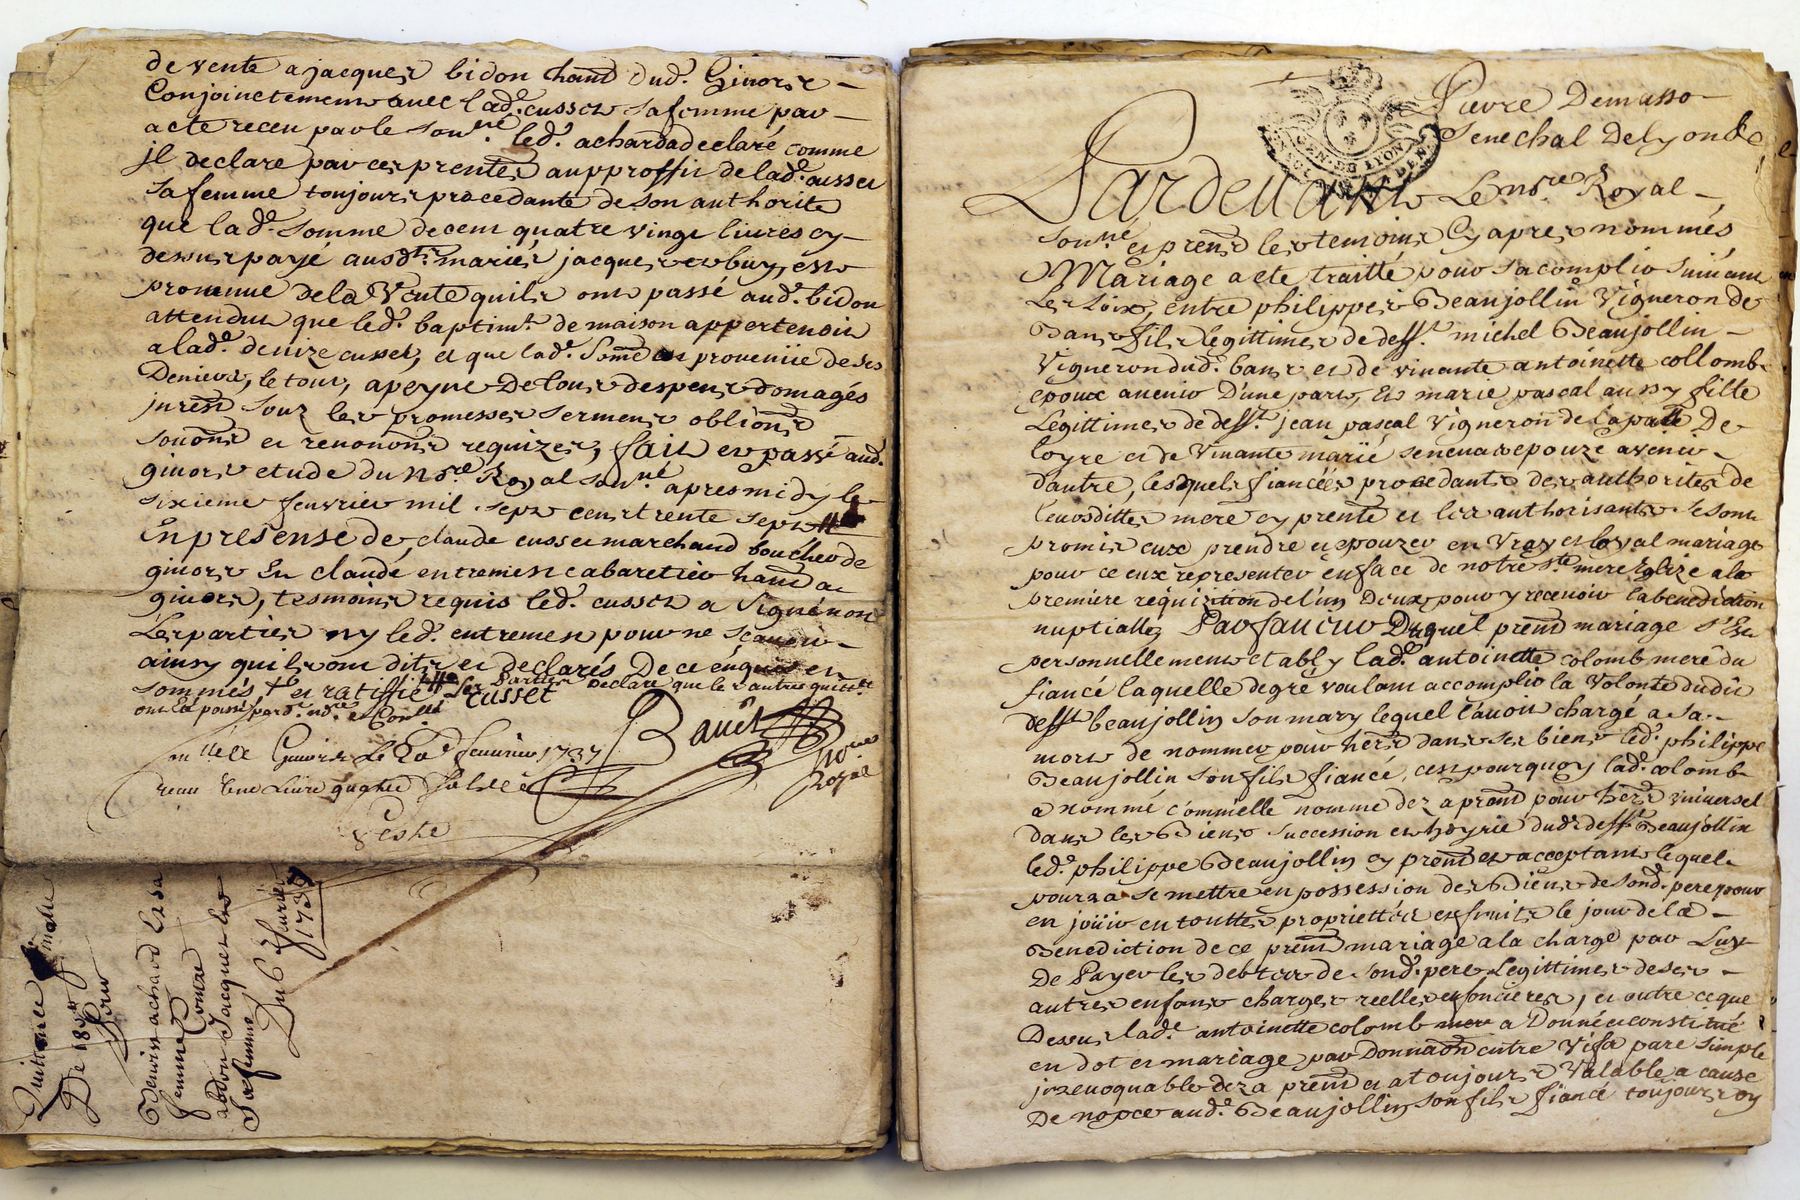 de vente a jacques bidon hant dud. Givors
Conjoinctement avec lad.e cusset sa femme par
acte receu par le son.né led. achard a declaré comme
jl declare par ces p̄ntes au proffit de lad.e cusset
sa femme toujours procedante de son authorite
que lad.e somme de cent quatre vingt livres cy
dessus payé ausdts mariés jacques et buy, est
provenue de la Vente quils ont passé aud. bidon
attendu que led. baptim.t de maison appertenoit
a lad.e denize cusset, et que lad.e somē est proveniie de ses
Deniers, le tout, a peyne De tous despens domagés
sous les promesses serment
et renonons requizes, fait et passé aud.
givors etude du No.re Royal sou.né apres midy le
sixieme feuvrier mil sept cent trente sept
En presense de claude cusset marchand boucher de
givors Et claude entremen cabaretier hant a
givors, tesmoins requis led. cusset a signé non
Les parties ny led. entremen pour ne sçavoir
ainsy quils ont dits et declarés De ce enquis et
sommés et ratiffié
Cusset
Bauet
No.re Royal
Givors Le feuvrier 1737
Reçu Une Livre quatre sols
Quittance
De 180
Denis achard Et sa
femme Contre
Jacques et
Sa femme
Du 6 feurier
1737
Pierre Demasso
Senechal De Lyon &c
GEN. DE LYON
Pardevant Le No.re Royal
sou.né et p̄nt les temoins Cy apres nommés
Mariage a ete traitté pour sacomplir suivant
Les Loix, entre philippes Beaujollin Vigneron de
Bans fils legittimes de deff.t michel Beaujollin
Vigneron dud. bans et de vivante antoinette collomb
epoux avenir D'une part, Et marie pascal aussy fille
Legittimes de deff.t jean pascal Vigneron de
loyre et de Vivante marie epouze avenir
d'autre, lesquels fiancéés procedants des authorités de
leursdittes mere cy p̄nte et les authorisants se sont
promis eux prendre et epouzer en Vray et loyal mariage
pour ce eux representer en face de notre S.te mere Eglize a la
premiere requiztion de l'un Deux pour y recevoir la benediction
nuptialle, Par faveur Duquel p̄nt mariage s'Est
personnellement etably lad.e antoinette colomb mere du
fiancé laquelle de gré voulant accomplir la Volonte dudit
deff.t beaujollin son mary lequel l'avoit chargé a sa
mort de nommer pour her̄ dans ses biens led. philippe
Beaujollin son fils fiancé, cest pourquoy lad.e colomb
a nommé comme elle nomme dez a p̄nt pour her̄ Vniversel
dans les Biens succession et hoyrie dudt deff.t Beaujollin
led. philippe Beaujollin cy p̄nt et acceptant lequel
pourra se mettre en possession des Biens de sond. pere pour
en joüir en toutte proprietté et fruits le jour de la
Benediction de ce p̄nt mariage a la charge par Luy
De Payer les debtes de sond. pere Legittimes de ses
autres enfans charges reelles et foncieres, et outre ce que
Dessus lad.e antoinette colomb mere a Donné et constitué
en dot et mariage par donnāon entre Vifs pure simple
jrrevoquable dez a p̄nt et a toujours Valable a cause
De nopce aud. Beaujollin son fils fiancé toujours cy